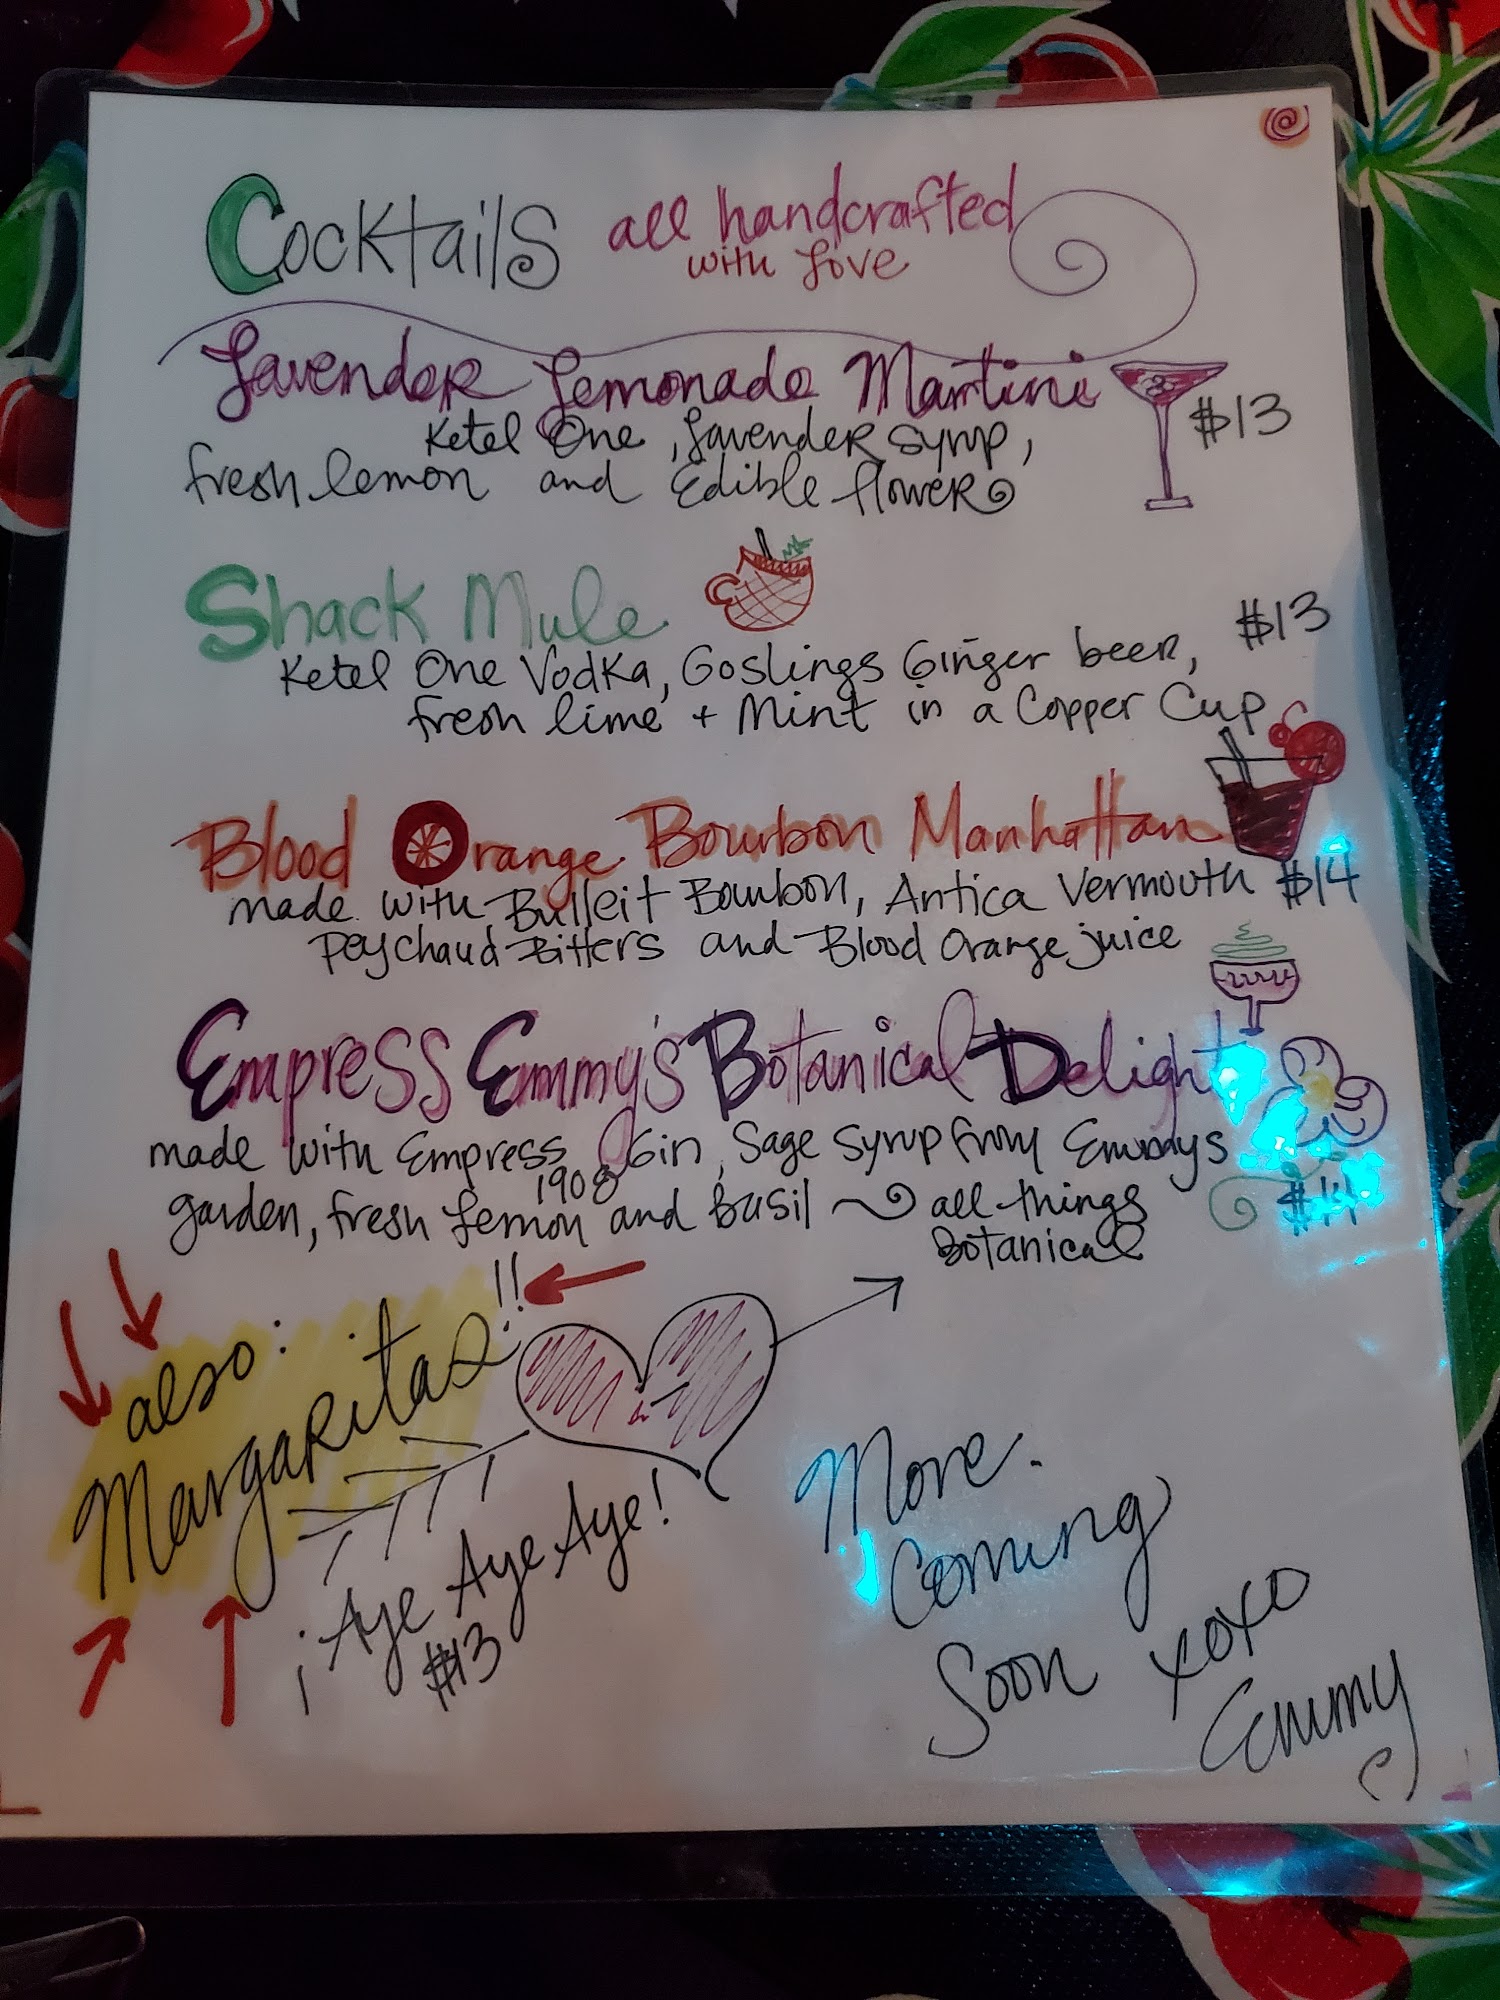 Cocktails all handcrafted
with Love
Lavender Lemonade Martini
Ketel One, Lavender syrup, $13
fresh lemon and Edible flower
Shack Mule
$13
Ketel One Vodka, Goslings Ginger beer,
fresh lime + Mint in a Copper Cup
Blood Orange Bourbon Manhattan
made with Bulleit Bourbon, Antica Vermouth $14
Peychaud Bitters and Blood Orange juice
Empress Emmy's Botanical Delight
made with Empress 1908 Gin, Sage Syrup from Emmys
garden, fresh Lemon and Basil ~ all things
Botanical
$14
also:
Margaritas!!
¡Aye Aye Aye!
$13
More
Coming
Soon xoxo
Emmy